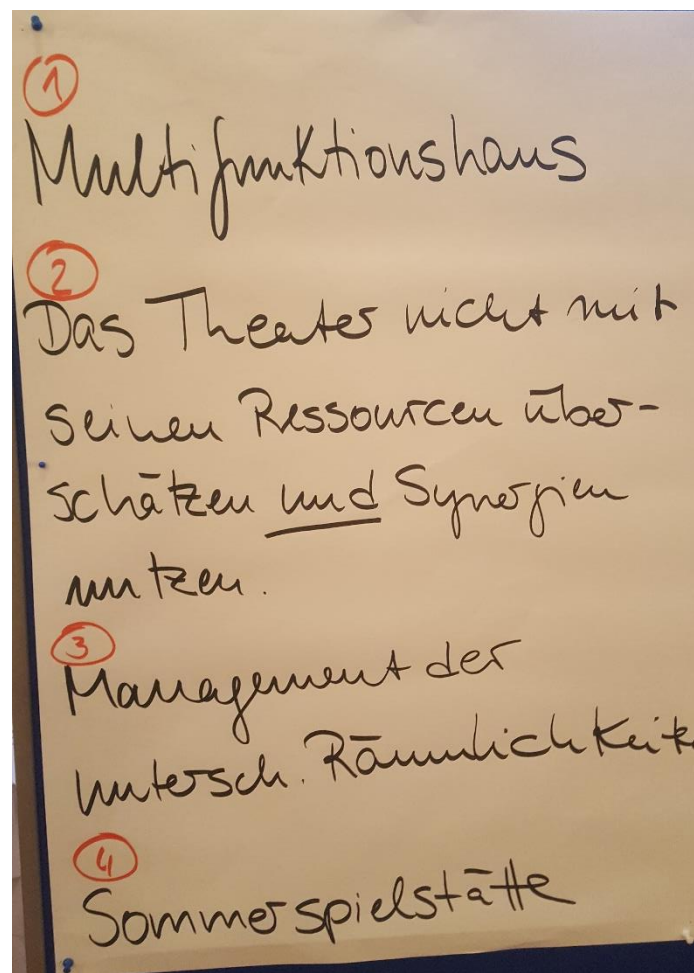 1
Multifunktionshaus
2
Das Theater nicht mit
seinen Ressourcen über-
schätzen und Synergien
nutzen.
3
Management der
untersch. Räumlichkeite
4
Sommerspielstätte